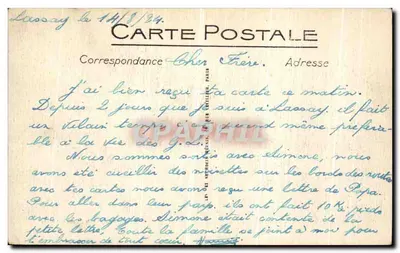 Lassay le 14/8/34
CARTE POSTALE
Correspondance Cher Frère. Adresse
J'ai bien reçu ta carte ce matin.
Depuis 2 jours que je suis à Lassay, il fait
un vilain temps quand même préféra-
ble à la vie des
Nous sommes sortis avec Simone, nous
avons été cueillir des noisettes sur les bords des routes
avec tes cartes nous avons reçu une lettre de Papa.
Pour aller dans leur pays. ils ont fait 10 K. pieds
avec les bagages. Simone était contente de la
petite lettre, toute la famille se joint à moi pour
t'embrasser de tout cœur.